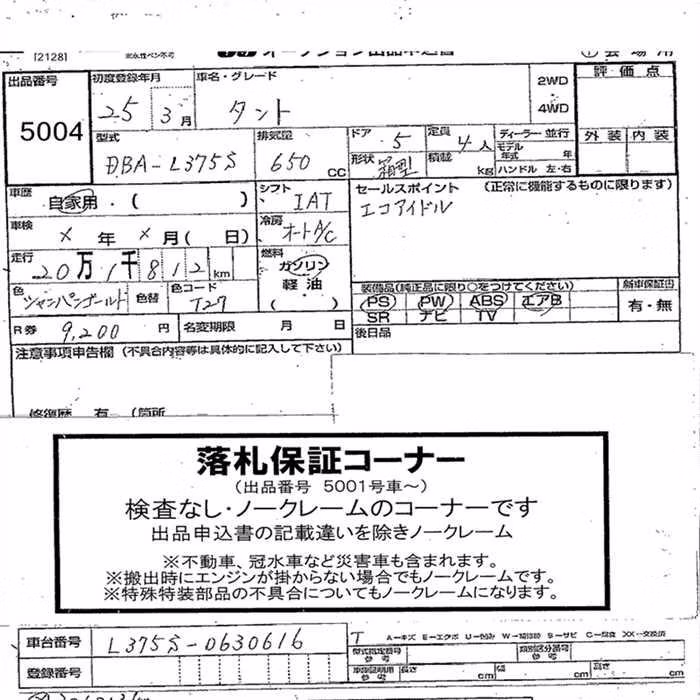 [2128]
オークション出品申込書
出品番号 5004
初度登録年月 25 3月
車名・グレード タント
2WD・4WD
評価点
外装 内装
型式 DBA-L375S
排気量 650 CC
ドア 5
定員 4人
形状 箱型
積載 kg
ディーラー・並行
モデル年式 年
ハンドル 左・右
車歴 自家用・( )
シフト IAT
セールスポイント (正常に機能するものに限ります)
エコアイドル
車検 X年 X月( 日)
冷房 オートA/C
走行 20万1千812km
燃料 ガソリン 軽油 ( )
色 シャンパンゴールド
色替
色コード T27
装備品(純正品に限り○をつけてください)
PS PW ABS エアB
SR ナビ TV
新車保証書 有・無
R券 9,200円
名変期限 月 日
後日品
注意事項申告欄 (不具合内容等は具体的に記入して下さい)
修復歴 有 (箇所
落札保証コーナー
(出品番号 5001号車~)
検査なし・ノークレームのコーナーです
出品申込書の記載違いを除きノークレーム
※不動車、冠水車など災害車も含まれます。
※搬出時にエンジンが掛からない場合でもノークレームです。
※特殊特装部品の不具合についてもノークレームになります。
車台番号 L375S-0630616
登録番号
T A-キズ E-エクボ U-凹み S-サビ C-腐食 XX-交換済
型式指定番号 参考
類別区分番号 参考
車検証明用 参考 長さ cm 幅 cm 高さ cm